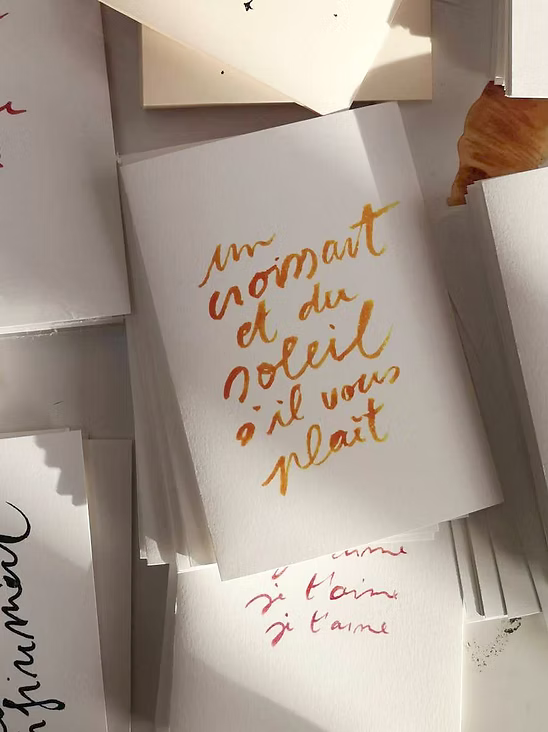 un
croissant
et du
soleil
s'il vous
plaît
je t'aime
je t'aime